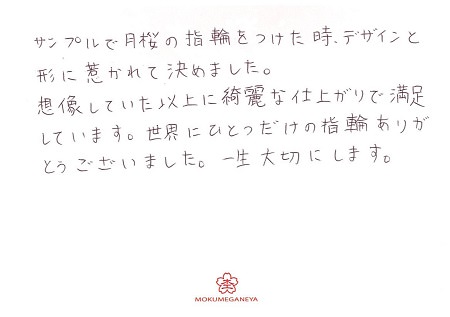 サンプルで月桜の指輪をつけた時、デザインと
形に惹かれて決めました。
想像していた以上に綺麗な仕上がりで満足
しています。世界にひとつだけの指輪ありが
とうございました。一生大切にします。
MOKUMEGANEYA